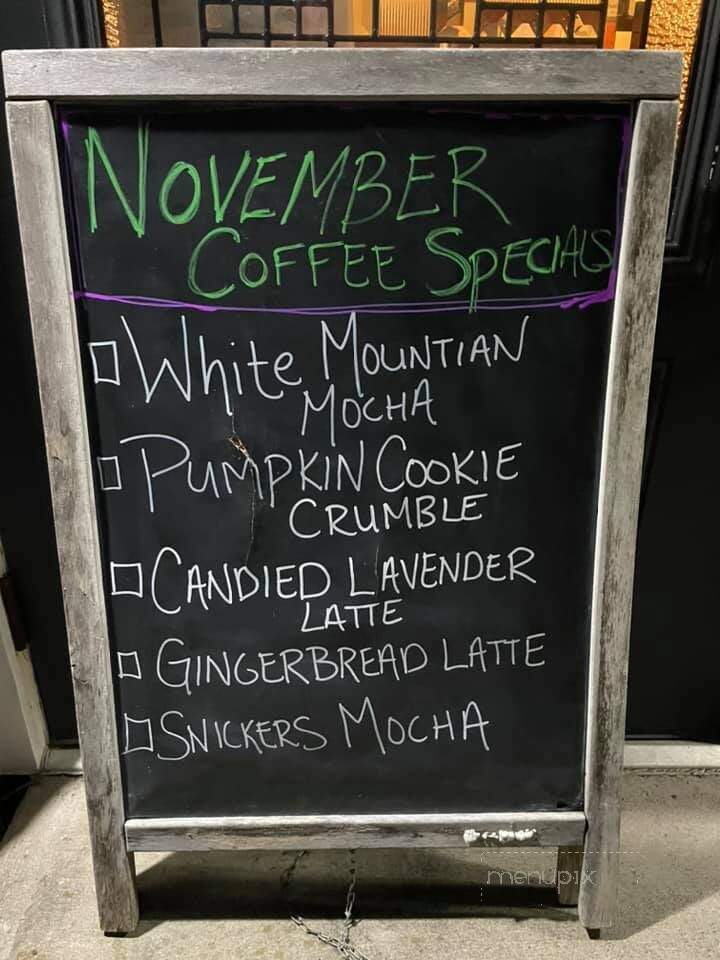 NOVEMBER
COFFEE SPECIALS
White MOUNTIAN
MOCHA
PUMPKIN COOKIE
CRUMBLE
CANDIED LAVENDER
LATTE
GINGERBREAD LATTE
SNICKERS MOCHA
menupix